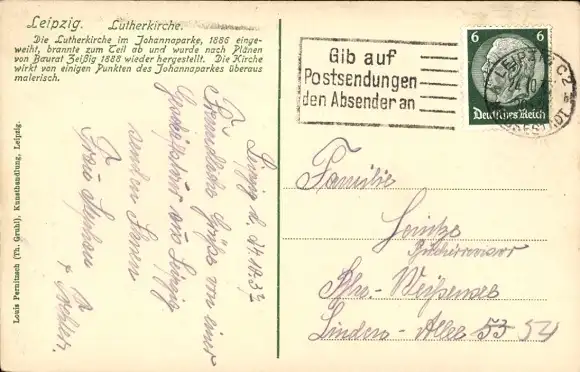 Leipzig. Lutherkirche.
Die Lutherkirche im Johannaparke, 1886 einge-
weiht, brannte zum Teil ab und wurde nach Plänen
von Baurat Zeißig 1888 wieder hergestellt. Die Kirche
wirkt von einigen Punkten des Johannaparkes überaus
malerisch.
Louis Pernitzsch (Th. Gruhl), Kunsthandlung, Leipzig.
Gib auf
Postsendungen
den Absender an
6 6
Deutsches Reich
LEIPZIG C2
Leipzig d.
Freundliche Grüße von einer
aus Leipzig
senden Ihnen
Frau
Familie
Bln-Weißensee
Linden-Allee 53 54